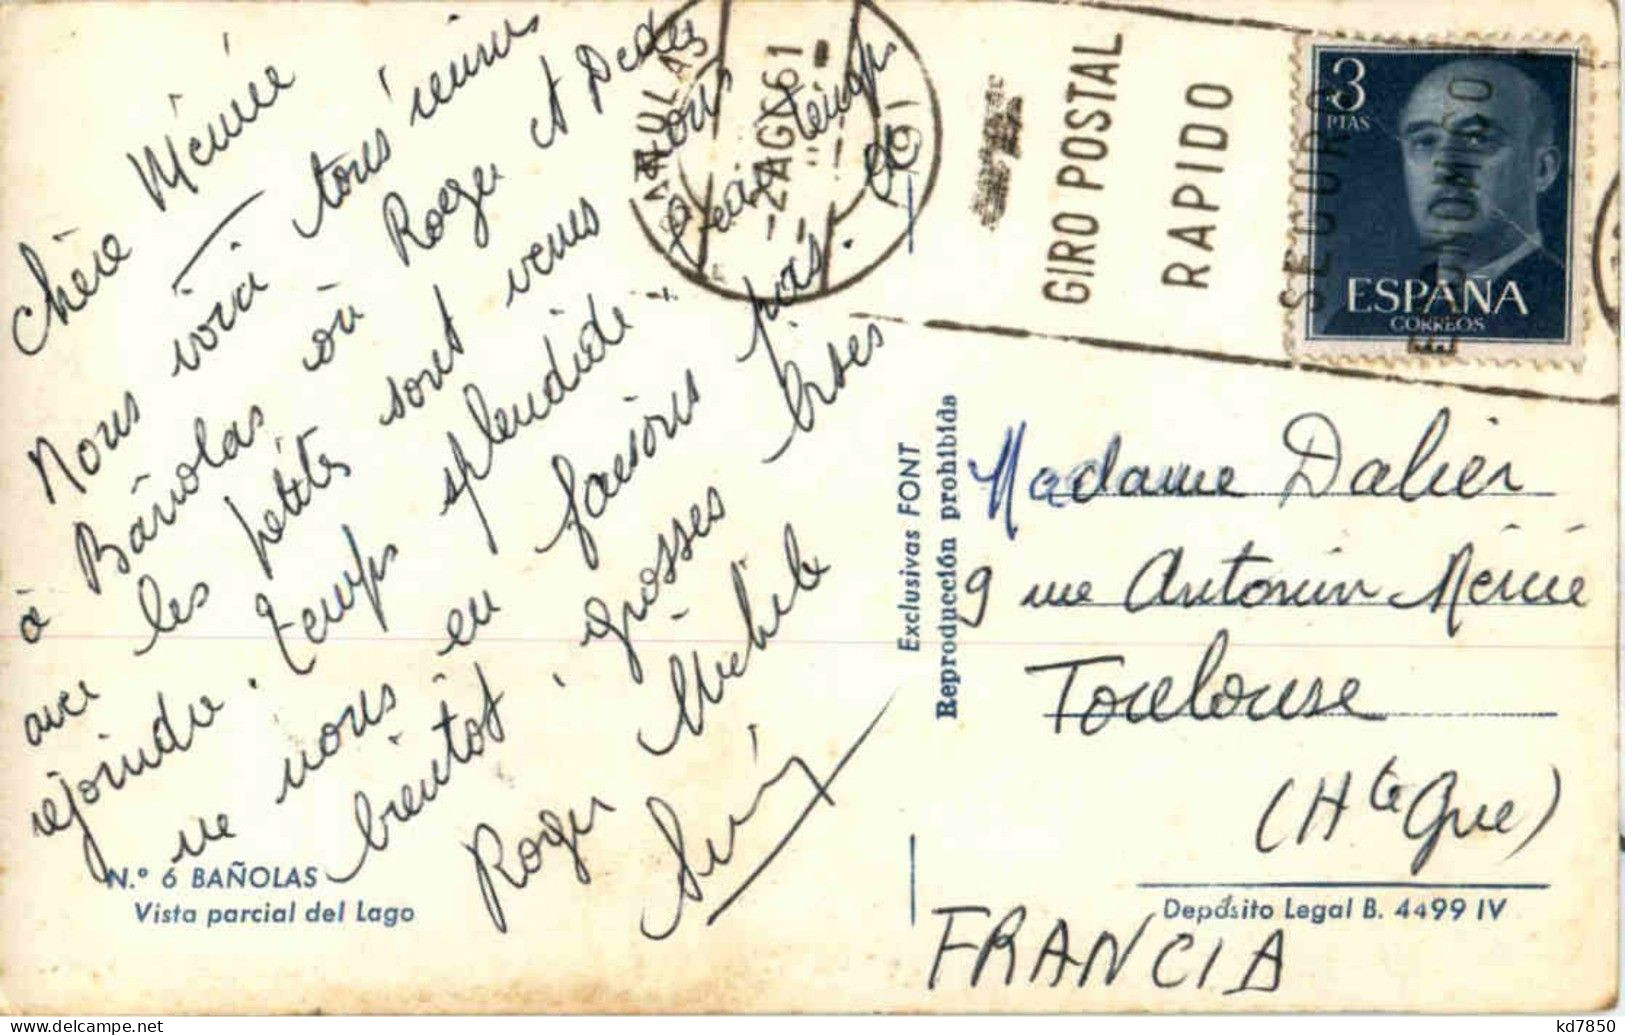 Chère Mémée
Nous voici tous réunis
à Bañolas où Roger et Dédée
avec les petites sont venus nous
rejoindre. Temps splendide - Beau temps
ne nous en faisons pas. et
bientôt. grosses bises
Roger Michele
N.º 6 BAÑOLAS
Vista parcial del Lago
Exclusivas FONT
Reproducción prohibida
-2 AGO 61
GIRO POSTAL
RAPIDO
SEGURO
ECONOMICO
3
PTAS
ESPAÑA
CORREOS
Madame Dalier
9 rue Antonin Mercié
Toulouse
(Hte Gne)
Depósito Legal B. 4499 IV
FRANCIA
kd7850